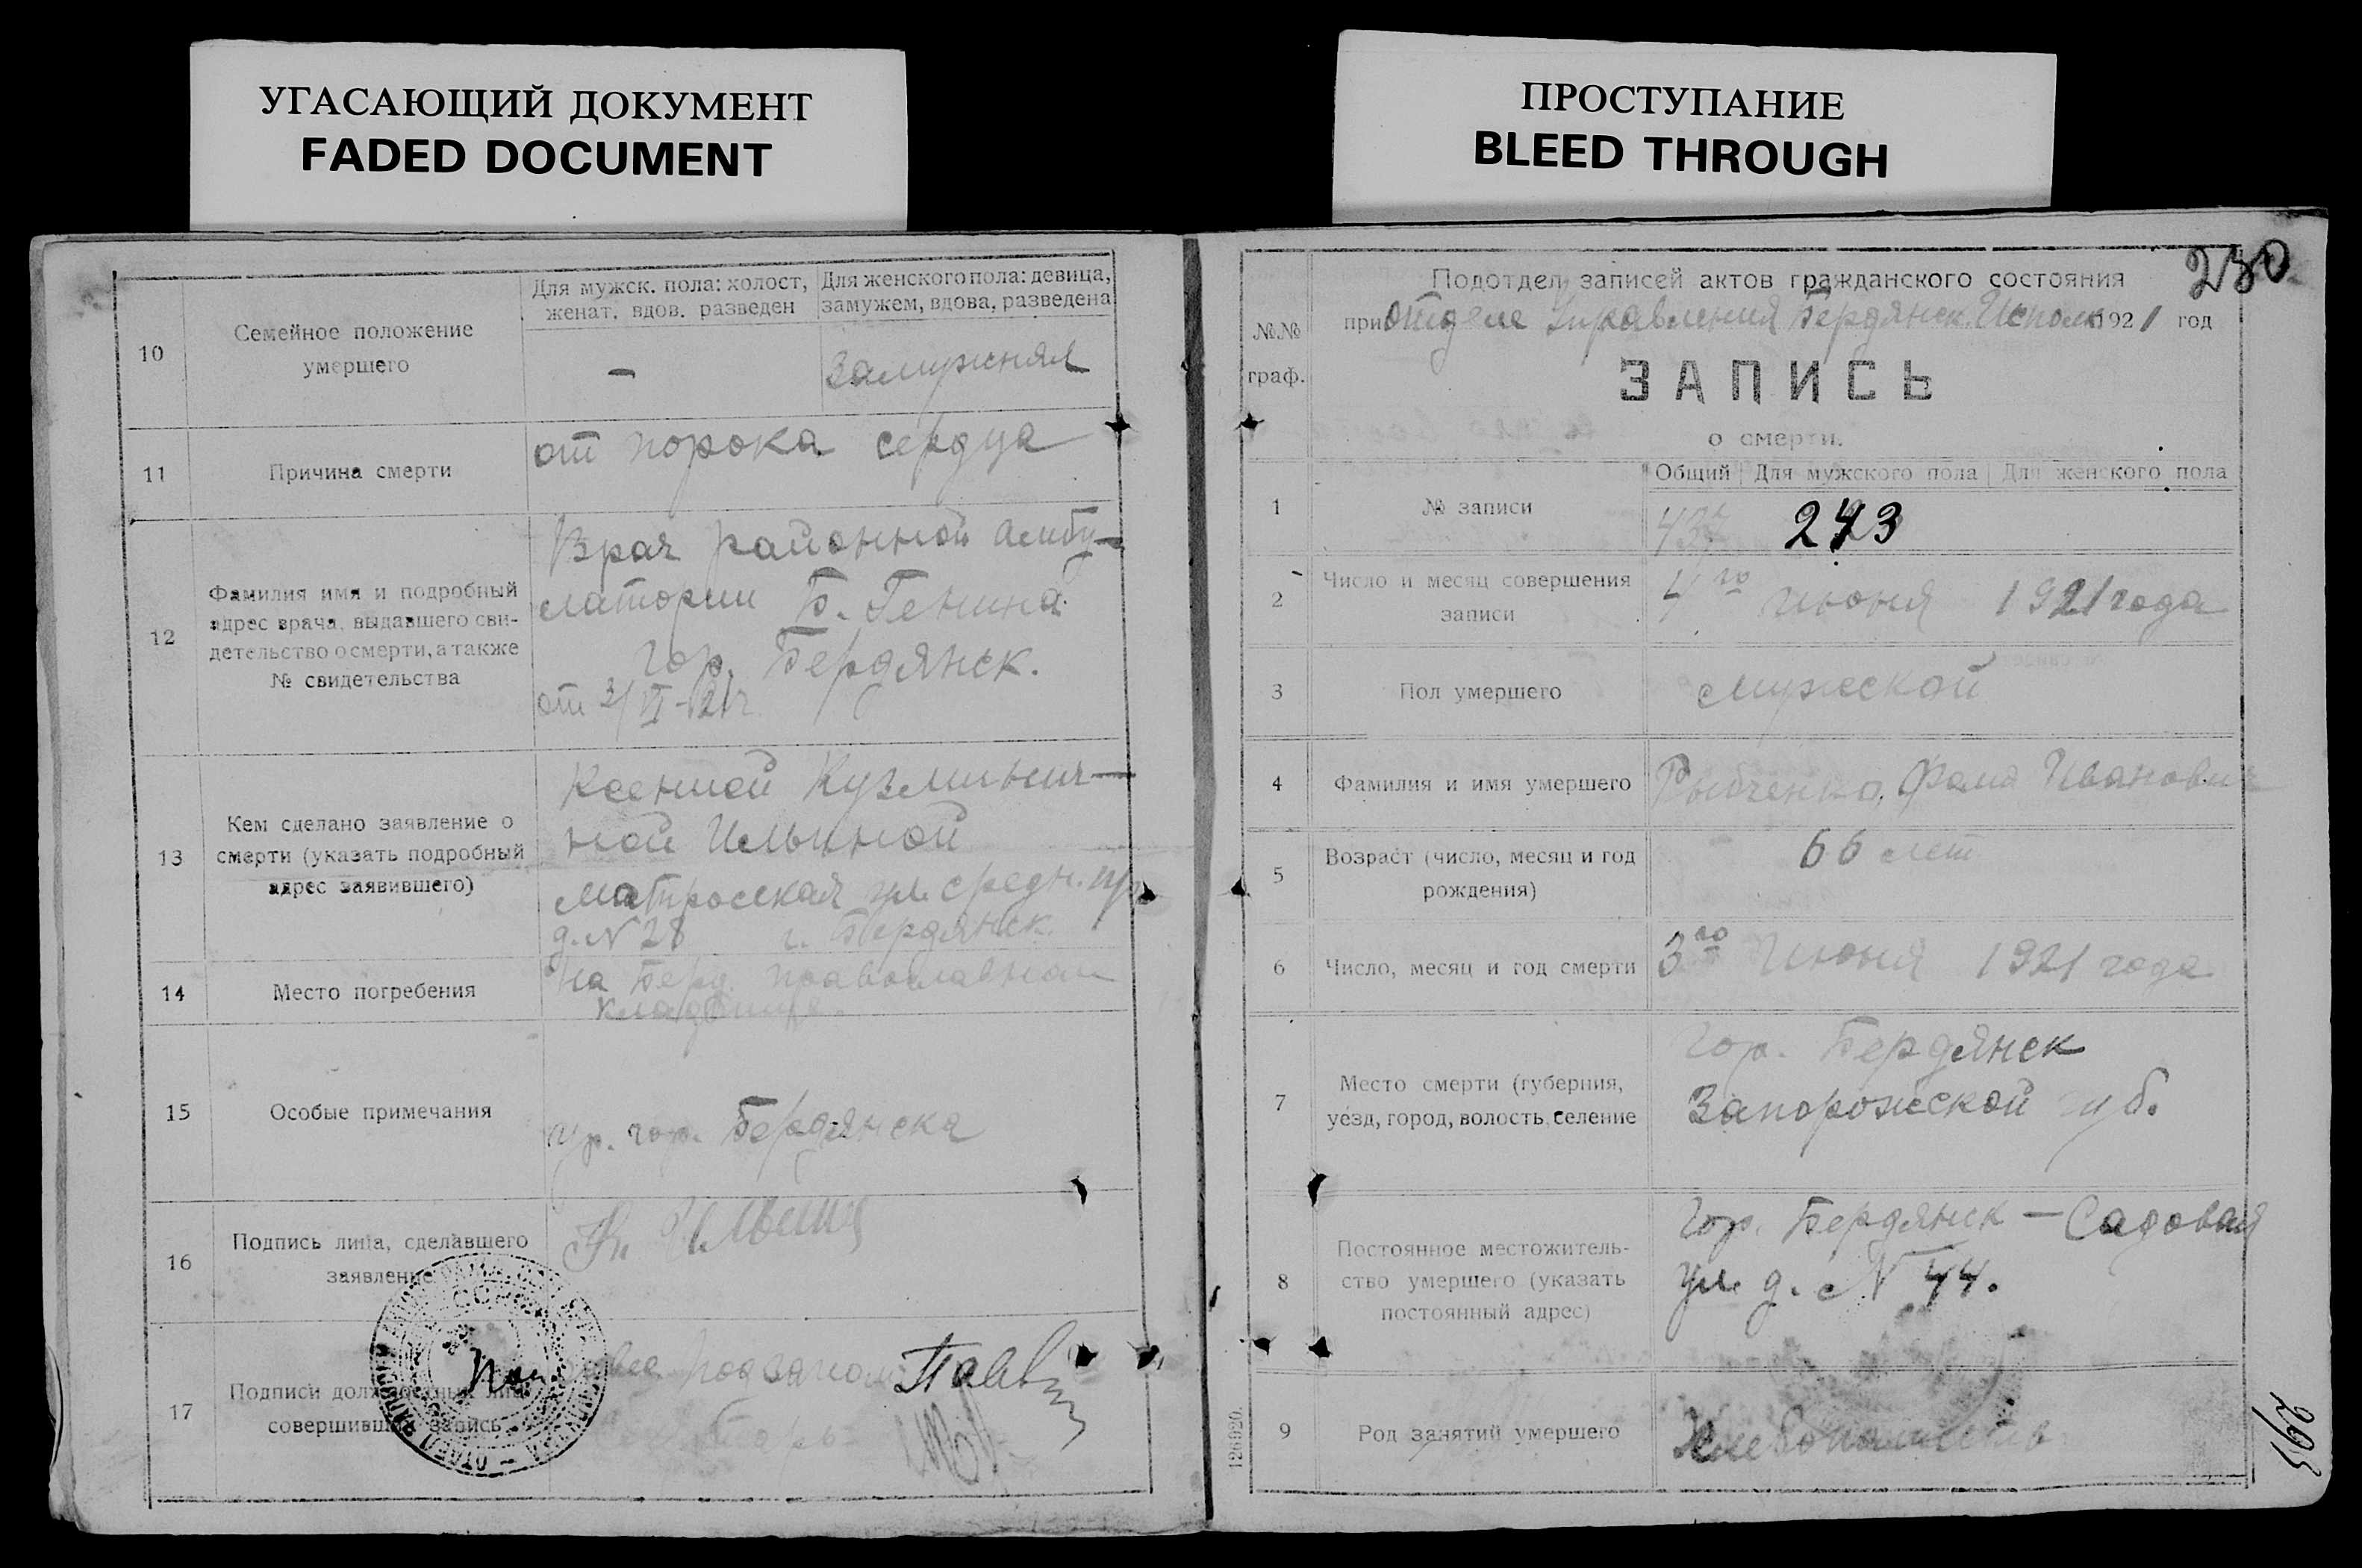 УГАСАЮЩИЙ ДОКУМЕНТ
FADED DOCUMENT
ПРОСТУПАНИЕ
BLEED THROUGH
10
Семейное положение
умершего
Для мужск. пола: холост,
женат, вдов. разведен
Для женского пола: девица,
замужем, вдова, разведена
—
Замужняя
11
Причина смерти
от порока сердца
12
Фамилия имя и подробный
адрес врача, выдавшего сви-
детельство о смерти, а также
№ свидетельства
Врач районной амбу-
латории Б. Генина
гор. Бердянск.
от 3/VI-21г.
13
Кем сделано заявление о
смерти (указать подробный
адрес заявившего)
Ксенией Кузьминич-
ной Ильиной
Матросская ул. средн. пр.
д. № 28 г. Бердянск.
14
Место погребения
на Берд. православном
кладбище.
15
Особые примечания
гр. гор. Бердянска
16
Подпись лица, сделавшего
заявление
Кс. Ильина
17
Подписи должностных лиц
совершивших запись
№№
граф.
Подотдел записей актов гражданского состояния
230
при Отделе Управления Бердянск. Исполк. 1921 год
ЗАПИСЬ
о смерти.
1
№ записи
Общий
Для мужского пола
Для женского пола
437
273
2
Число и месяц совершения
записи
4го июня 1921 года
3
Пол умершего
мужской
4
Фамилия и имя умершего
Рыбченко, Фома Иванович
5
Возраст (число, месяц и год
рождения)
66 лет
6
Число, месяц и год смерти
3го Июня 1921 года
7
Место смерти (губерния,
уезд, город, волость, селение
гор. Бердянск
Запорожской губ.
8
Постоянное местожитель-
ство умершего (указать
постоянный адрес)
Гор. Бердянск — Садовая
ул. д. № 44.
9
Род занятий умершего
Хлебопашец
126920.
295